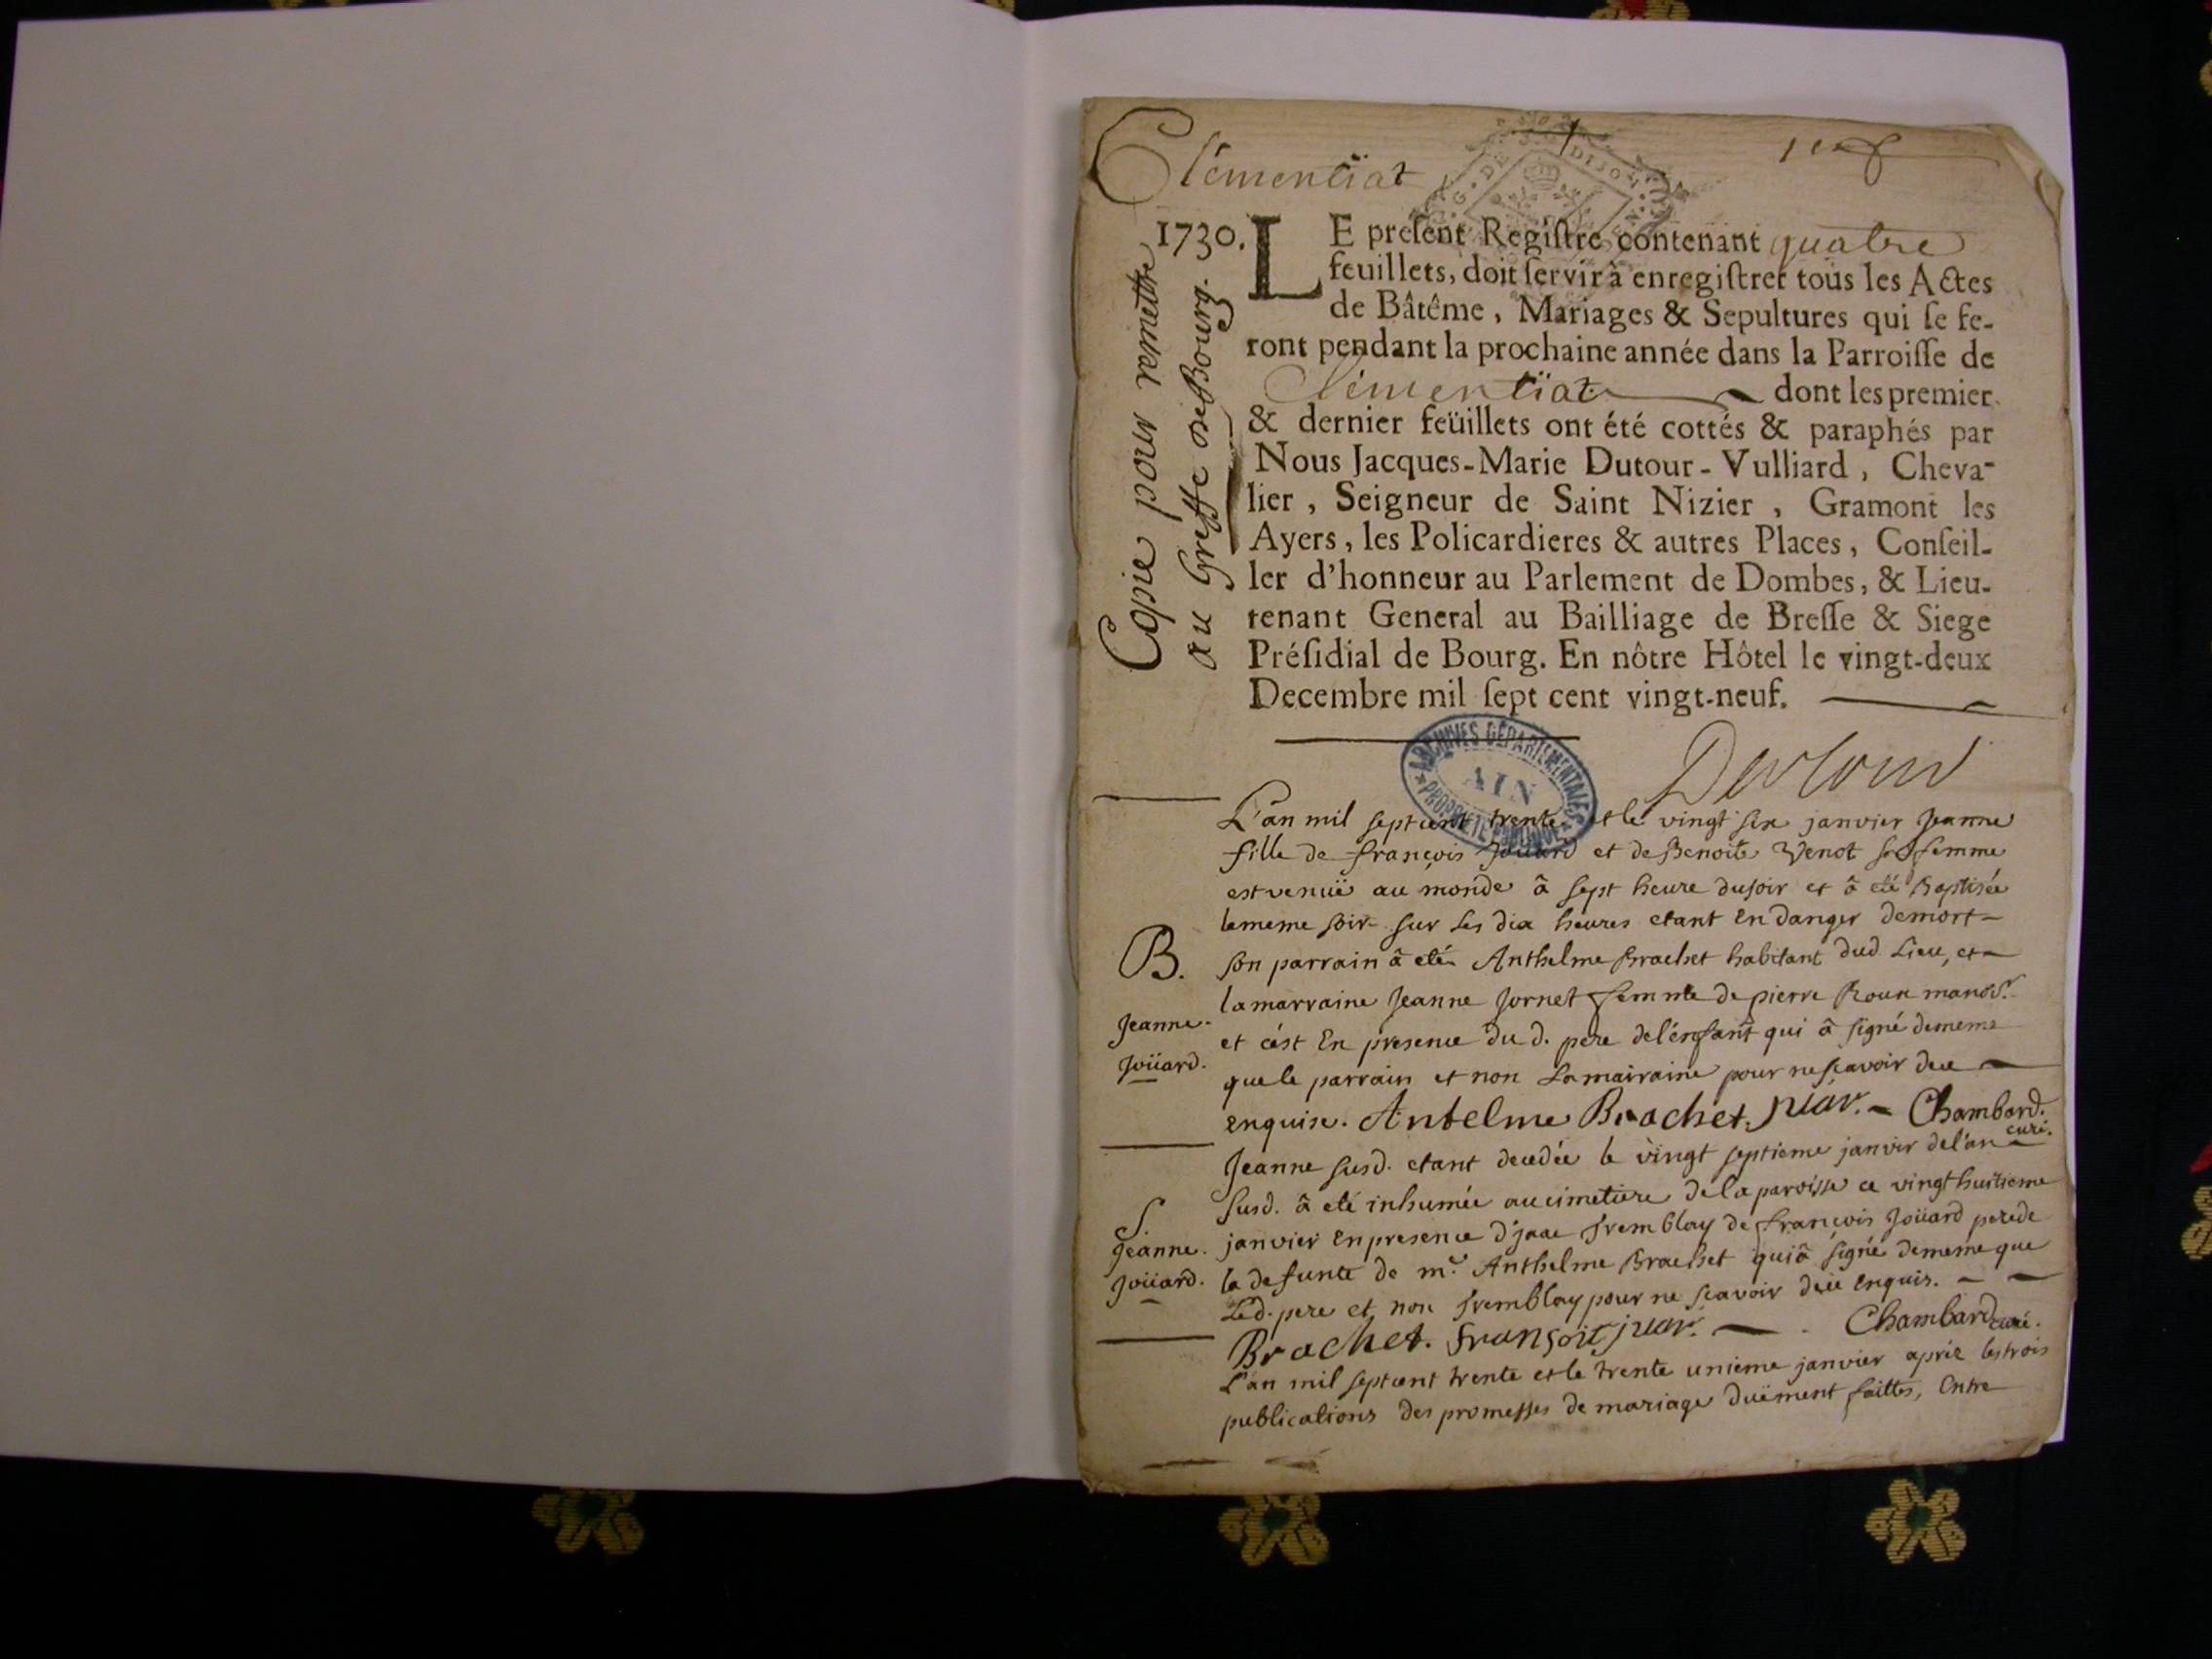 Clémentiat
1730.
Copie pour remettre
au Greffe de Bourg.
LE preſent Regiſtre contenant quatre
feuillets, doit ſervir à enregiſtrer tous les Actes
de Bâtême, Mariages & Sepultures qui ſe fe-
ront pendant la prochaine année dans la Parroiſſe de
Clémentiat dont les premier
& dernier feüillets ont été cottés & paraphés par
Nous Jacques-Marie Dutour-Vulliard, Cheva-
lier, Seigneur de Saint Nizier, Gramont les
Ayers, les Policardieres & autres Places, Conſeil-
ler d'honneur au Parlement de Dombes, & Lieu-
tenant General au Bailliage de Breſſe & Siege
Préſidial de Bourg. En nôtre Hôtel le vingt-deux
Decembre mil ſept cent vingt-neuf.
ARCHIVES DÉPARTEMENTALES
AIN
PROPRIÉTÉ PUBLIQUE
L'an mil sept cent trente et le vingt six janvier Jeanne
fille de françois Joüard et de Benoite Venot sa femme
est venuë au monde â sept heure du soir et â eté Baptisée
le meme soir sur les dix heures etant En danger de mort
son parrain â eté Anthelme Brachet habitant dud. Lieu, et
la marraine Jeanne Jornet femme de pierre Roux
et c'est En presence du d. pere de l'enfant qui â signé de meme
que le parrain et non La marraine pour ne scavoir de ce
enquise. Antelme Brachet. Chambard.
curé.
B.
Jeanne.
Joüard.
Jeanne susd. etant decedée le vingt septieme janvier de l'an
susd. â eté inhumée au cimetiere de la paroisse ce vingt huitieme
janvier En presence d'jsaac Tremblay de françois Joüard pere de
la defunte de m.e Anthelme Brachet qui â signé de meme que
Led. pere et non Tremblay pour ne scavoir de ce Enquis.
Brachet. fransoit juar. Chambard curé.
S.
Jeanne.
Joüard.
L'an mil sept cent trente et le trente unieme janvier aprés les trois
publications des promesses de mariage duëment faittes, Entre